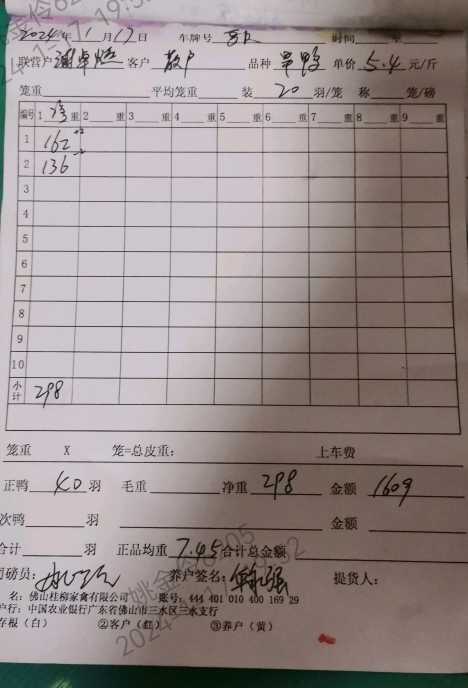 2024年1月17日 车牌号 时间
联营户 客户 散户 品种 单价 5.4 元/斤
笼重 平均笼重 装 20 羽/笼 称 笼/磅
编号 1 净重 2 重 3 重 4 重 5 重 6 重 7 重 8 重 9 重
1 162
2 136
3
4
5
6
7
8
9
10
小计 298
笼重 X 笼=总皮重: 上车费
正鸭 40 羽 毛重 净重 298 金额 1609
次鸭 羽 金额
合计 羽 正品均重 7.45 合计总金额
司磅员: 养户签名: 提货人:
名: 佛山桂柳家禽有限公司 账号: 444 401 010 400 169 29
户行: 中国农业银行广东省佛山市三水区三水支行
存根(白) ②客户(红) ③养户(黄)